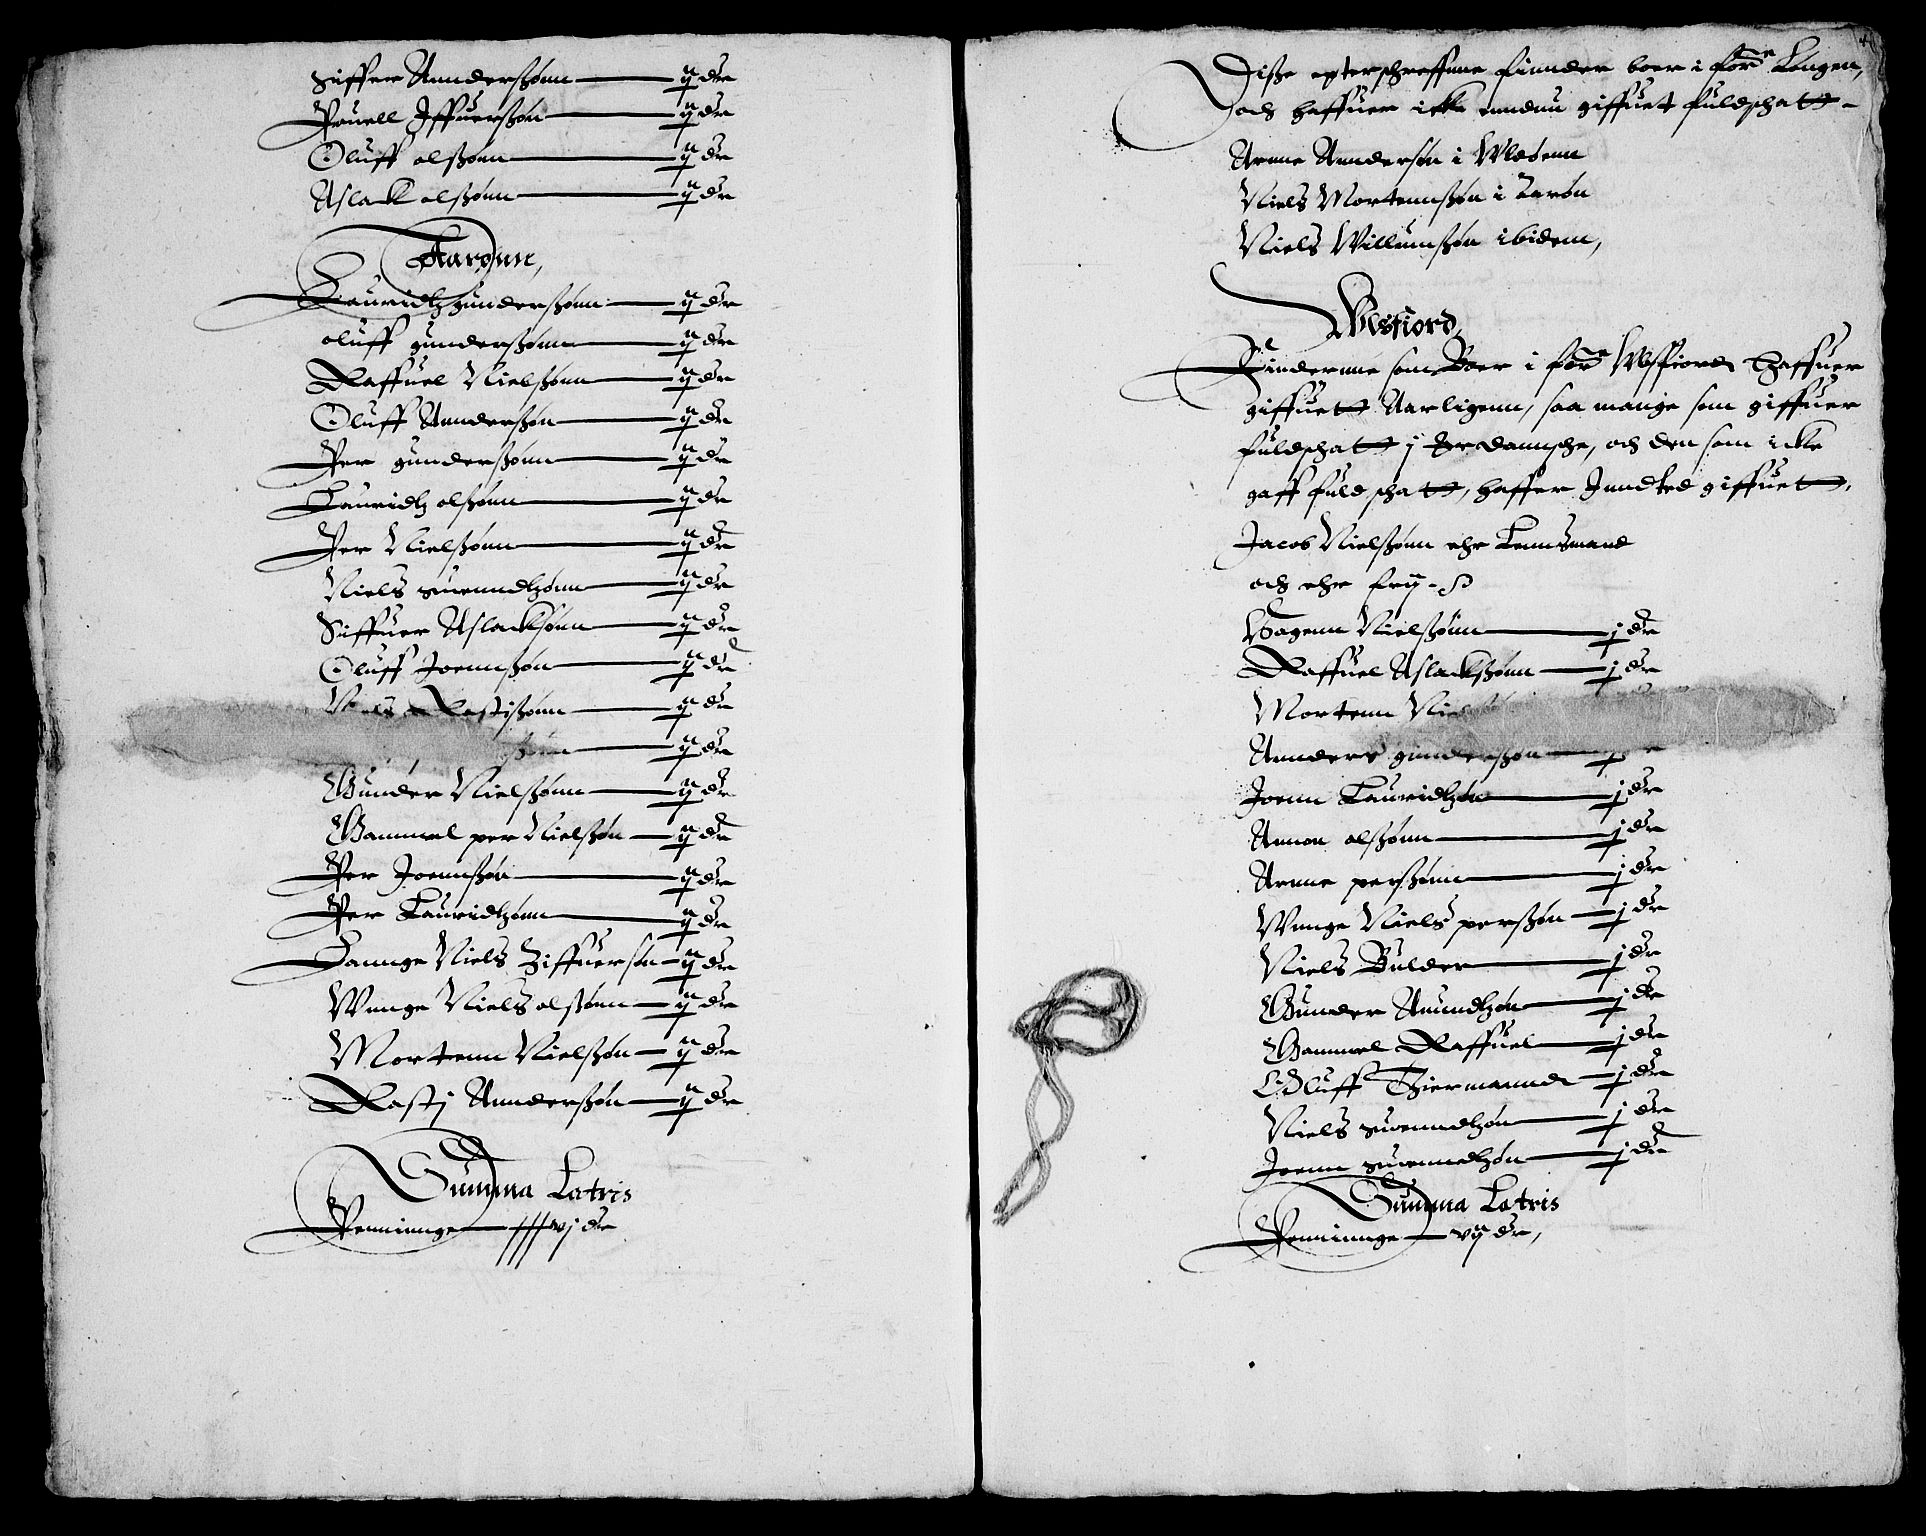 Siffver Anndersßønn — ij dr
Pouell Iffuersßøn — ij dr
Oluff olsßønn — ij dr
Aslack olsßønn — ij dr
Taroiinn,
Lauridtz gundersßønn — ij dr
oluff gundersßønn — ij dr
Raffuel Nielsßønn — ij dr
Oluff Anndersßøn — ij dr
Per gundersßønn — ij dr
Lauridtz olsßønn — ij dr
Per Nielsßønn — ij dr
Niels suenndtzønn — ij dr
Siffuer Aslacksønn — ij dr
Oluff Joennsßøn — ij dr
Niels Rastisßønn — ij dr
sßønn — ij dr
Gunder Nielsßønn — ij dr
Gammel per Nielsßøn — ij dr
Per Joennsßøn — ij dr
Per Lauridtzønn — ij dr
Lannge Niels Ziffuersøn — ij dr
Wnnge Niels olsßønn — ij dr
Mortenn Nielsßøn — ij dr
Rastj Anndersßøn — ij dr
Summa Latris
Penninnge — dr
Disße epterschreffnne finnder boer i forne Longen,
och haffuer icke enndnu giffuet fuldschatt
Arnne Anndersøn i Wløenn
Niels Mortennsßøn i Tarøn
Niels Willumsßøn ibidem,
Wlsfiord,
Findernne som Boer i forne Wlsfiord, haffuer
giffuett Aarligenn, saa mange som giffuer
fuldschatt j dr dannsche, och den som icke
gaff fuld schatt, haffer Inndtet giffuett,
Jacob Nielsßønn ehr Lennsmand
och ehr frij
Vagenn Nielsßønn — j dr
Raffuel Aslacksßønn — j dr
Mortenn
Annders gundersßøn
Joenn Lauridtzøn — j dr
Amon olsßønn — j dr
Arnne persßønn — j dr
Wnnge Niels persßøn — j dr
Niels Bulder — j dr
Gunder Amundtzøn — j dr
Gammel Raffuel — j dr
Oluff Thiermannd — j dr
Niels suenndtzøn — j dr
Joenn suenndtzøn — j dr
Summa Latris
Penninnge — vij dr,